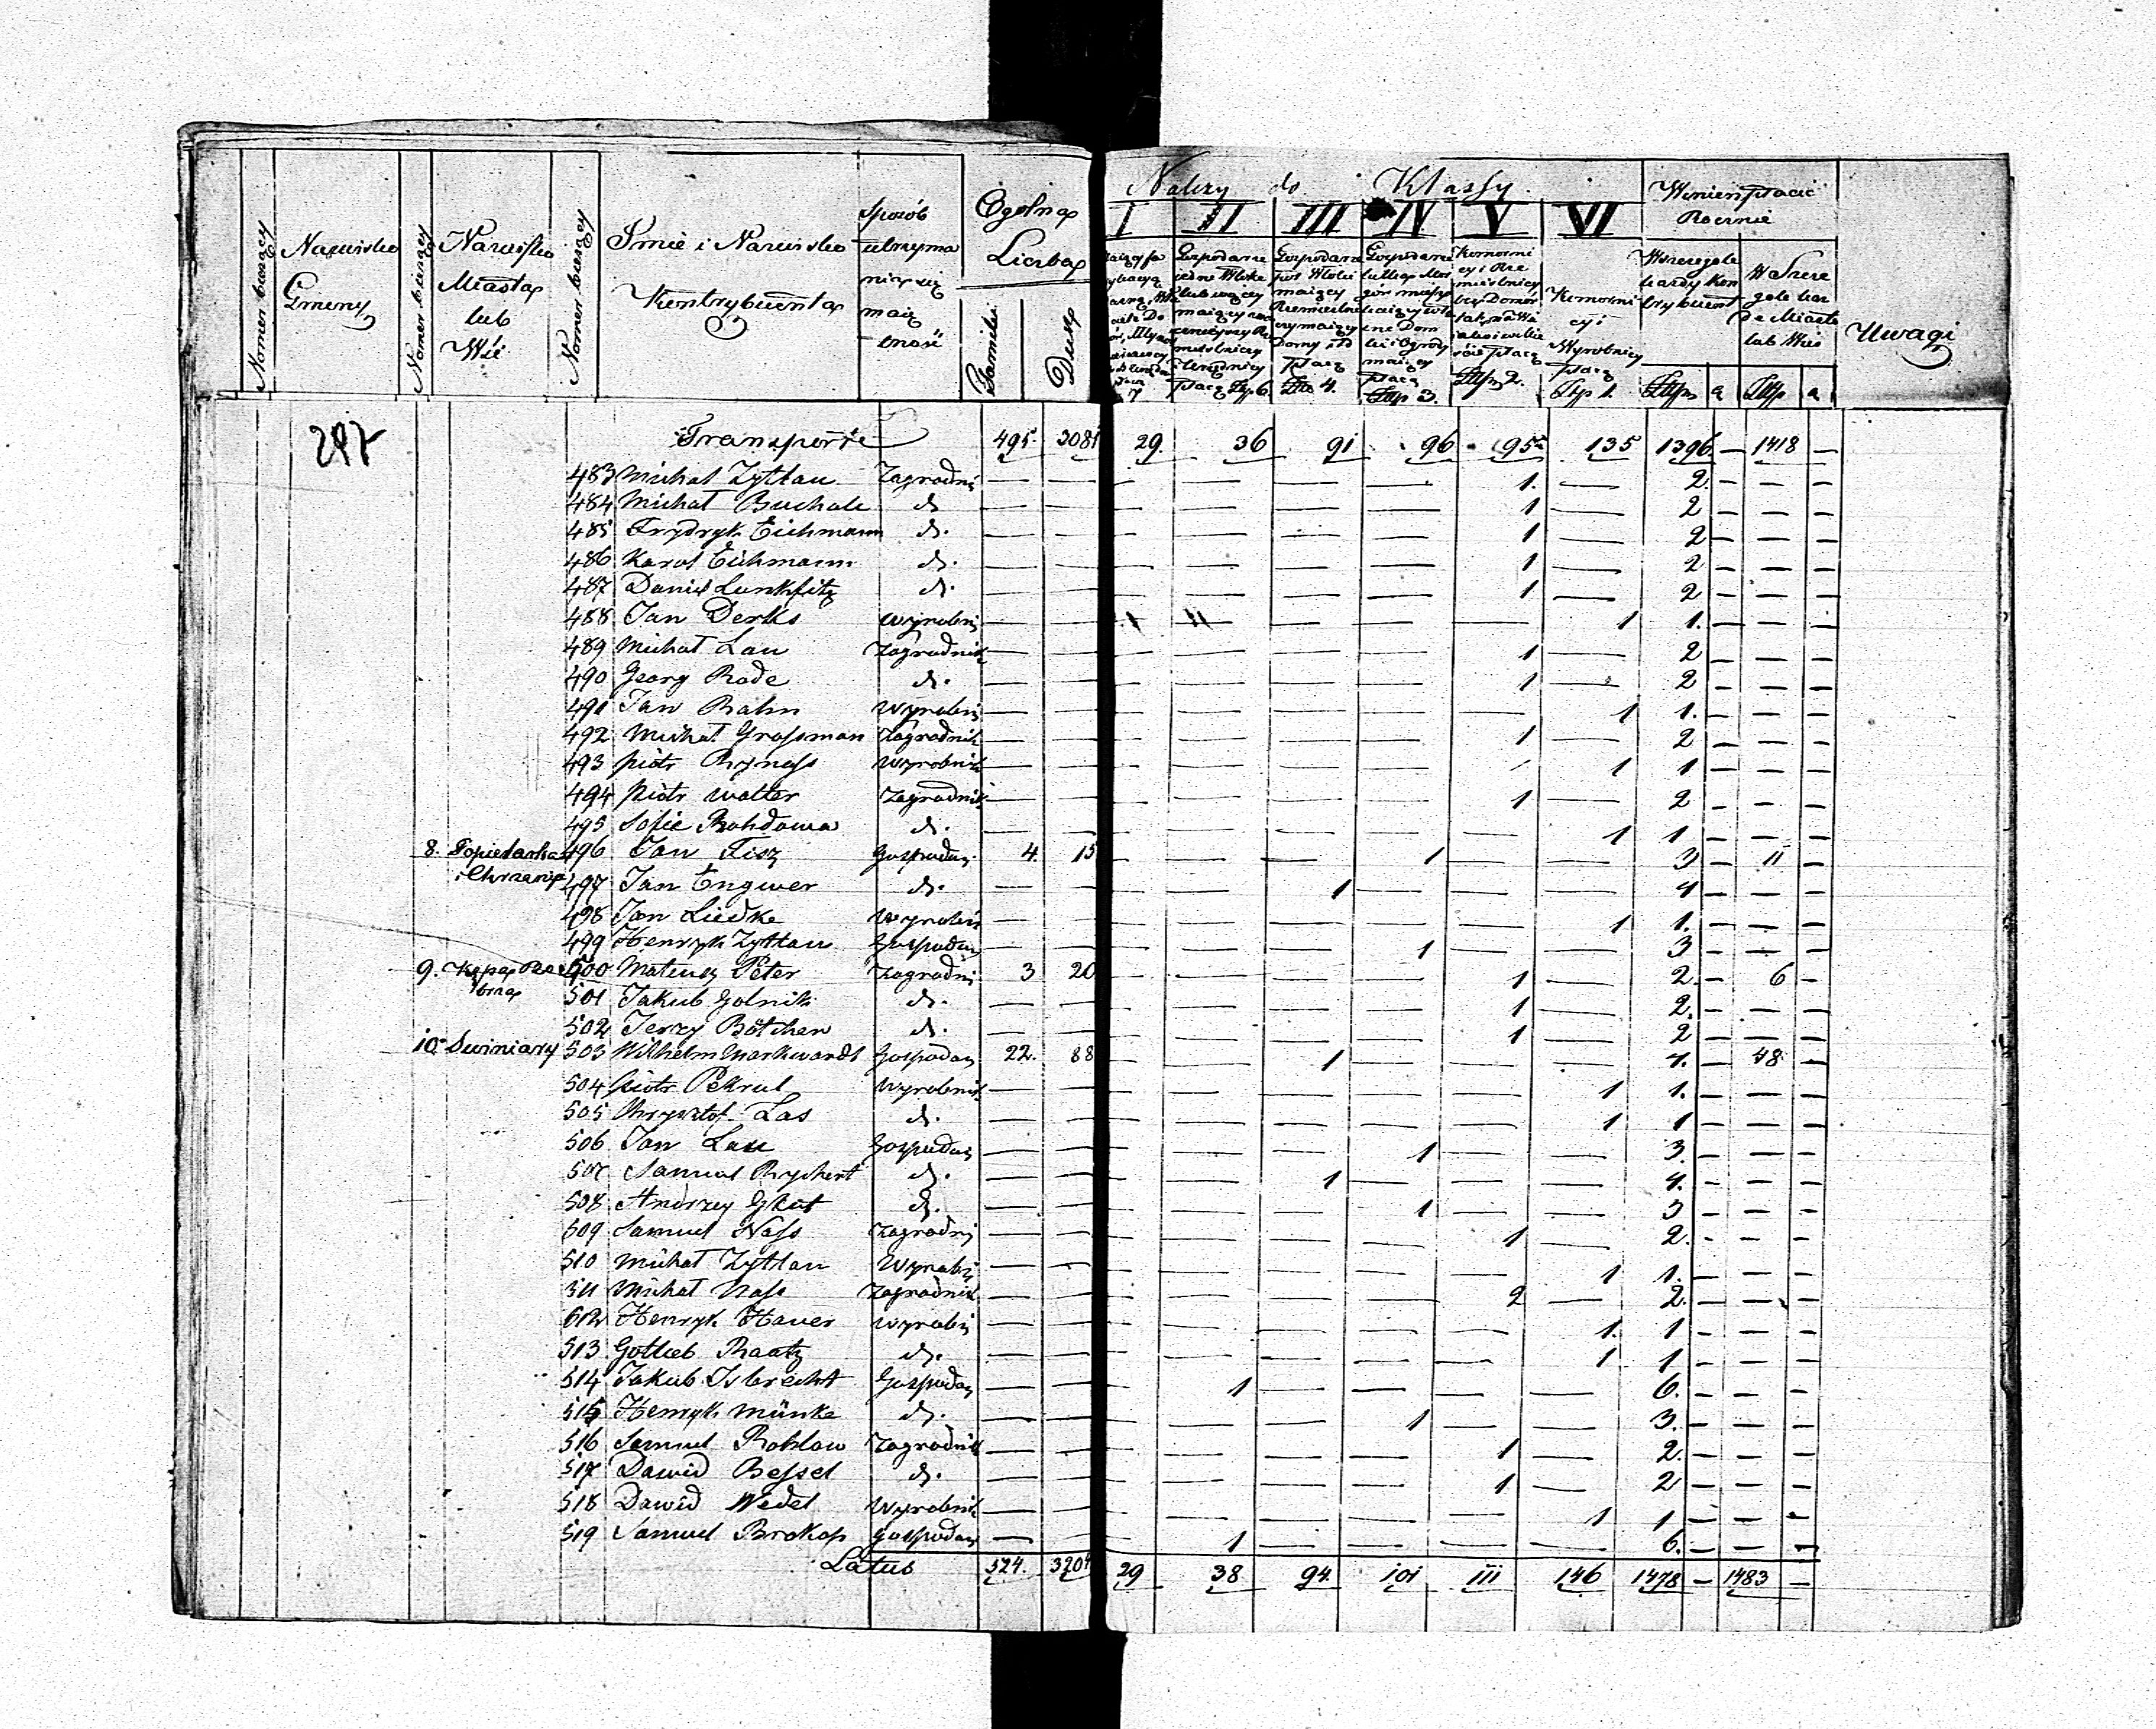 Nalezy do Klassy
Winien płacić
Rocznie
Ogolna
Liczba
Numer bieżący
Nazwisko
Gmeny
Numer bieżący
Nazwisko
Miasta
lub
Wsi
Numer bieżący
Imie i Nazwisko
Kontrybuenta
Sposób
utrzyma
nia się
Familii
Dusz
I II III IV V VI
Gospodarze
Gospodarze
Gospodarze
Komorni
cy i Rze
mieślnicy
Komorni
cy i
Wyrobnicy
płacą
Złp 1.
W szczegole
każdy kon
trybuent
W szcze
gole każ
de Miasto
lub Wieś
Uwagi
297
Transport 495. 3081 29. 36 91 96 95 135 1396 — 1418 —
483 Michał Zyttau Zagrodni — — — — — — 1. — 2. — — —
484 Michał Buchale d — — — — — — 1 — 2 — — —
485 Frydryk Eichmann d. — — — — — — 1 — 2 — — —
486 Karol Eichmann d. — — — — — — 1 — 2 — — —
487 Daniel Lunkfitz d. — — — — — — 1 — 2 — — —
488 Jan Derks Wyrobni — — — — — 1 1. — — —
489 Michał Lau Zagrodnik — — — — — — 1 — 2 — — —
490 Georg Rode d. — — — — — — 1 — 2 — — —
491 Jan Rahn Wyrobni — — — — — — — 1 1. — — —
492 Michał Grossman Zagrodnik — — — — — — 1 — 2 — — —
493 Piotr Rynass Wyrobnik — — — — — — 1 1 — — —
494 Piotr Walter Zagrodnik — — — — — — 1 — 2 — — —
495 Sofie Rohdowa d. — — — — — — — 1 1 — — —
8. Popielarka 496 Jan Fisz Gospodar. 4. 15 — — — 1 — — 3 — 11 —
i Chrzanip 497 Jan Engwer d. — — — — 1 — — — 4 — — —
498 Jan Liedke Wyrobni — — — — — — — 1 1. — — —
499 Henryk Zyttau Gospodar — — — — — 1 — — 3 — — —
9. Kępa 500 Mateusz Peter Zagrodni 3 20 — — — — 1 — 2. — 6 —
501 Jakub Golnik d. — — — — — — 1 — 2. — — —
502 Jerzy Bötcher d. — — — — — — 1 — 2 — — —
10. Swiniary 503 Wilhelm Markwardt Gospodar 22. 88 — — 1 — — — 4. — 48 —
504 Piotr Pekrul Wyrobnik — — — — — — — 1 1. — — —
505 Chrysztof Las d. — — — — — — — 1 1 — — —
506 Jan Lau Gospodar — — — — — 1 — — 3. — — —
507 Samuel Rychert d. — — — — 1 — — — 4. — — —
508 Andrzey Gkut d. — — — — — 1 — — 3 — — —
509 Samuel Nass Zagrodni — — — — — — 1 — 2. — — —
510 Michał Zyttau Wyrobni — — — — — — — 1 1. — — —
511 Michał Nass Zagrodnik — — — — — — 2 — 2. — — —
612 Henryk Hauer Wyrobni — — — — — — — 1. 1 — — —
513 Gotlieb Raatz d. — — — — — — — 1 1 — — —
514 Jakub Isbrecht Gospodar — — — 1 — — — — 6. — — —
515 Henryk Münke d. — — — — — 1 — — 3. — — —
516 Samuel Rohlow Zagrodnik — — — — — — 1 — 2. — — —
517 Dawid Bessel d. — — — — — — 1 — 2 — — —
518 Dawid Wedel Wyrobnik — — — — — — — 1 1 — — —
519 Samuel Brokop Gospodar — — — 1 — — — — 6. — — —
Latus 524. 3204 29 38 94. 101 111 146 1478 — 1483 —